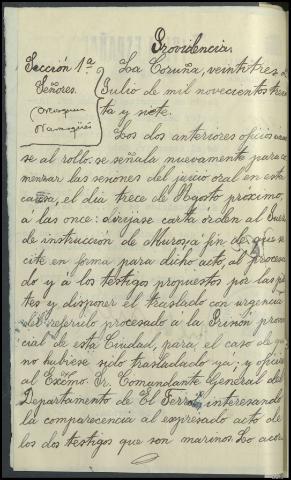 Providencia.
Sección 1ª
Señores.
La Coruña, veintitres
Julio de mil novecientos trein
ta y siete.
Los dos anteriores oficios
se al rollo. se señala nuevamente para co
menzar las sesiones del juicio oral en esta
causa, el dia trece de Agosto próximo,
á las once: dirijase carta orden al Juez
de instrucción de Muros a fin de que se
cite en forma para dicho acto, al procesa
do y á los testigos propuestos por las par
tes y disponer el traslado con urgencia
del referido procesado á la Prisión provin
cial de esta Ciudad, para el caso de que
no hubiese sido trasladado yá; y oficiese
al Excmo Sr. Comandante General del
Departamento de El Ferrol, interesando
la comparecencia al expresado acto de
los dos testigos que son marinos. Lo acor